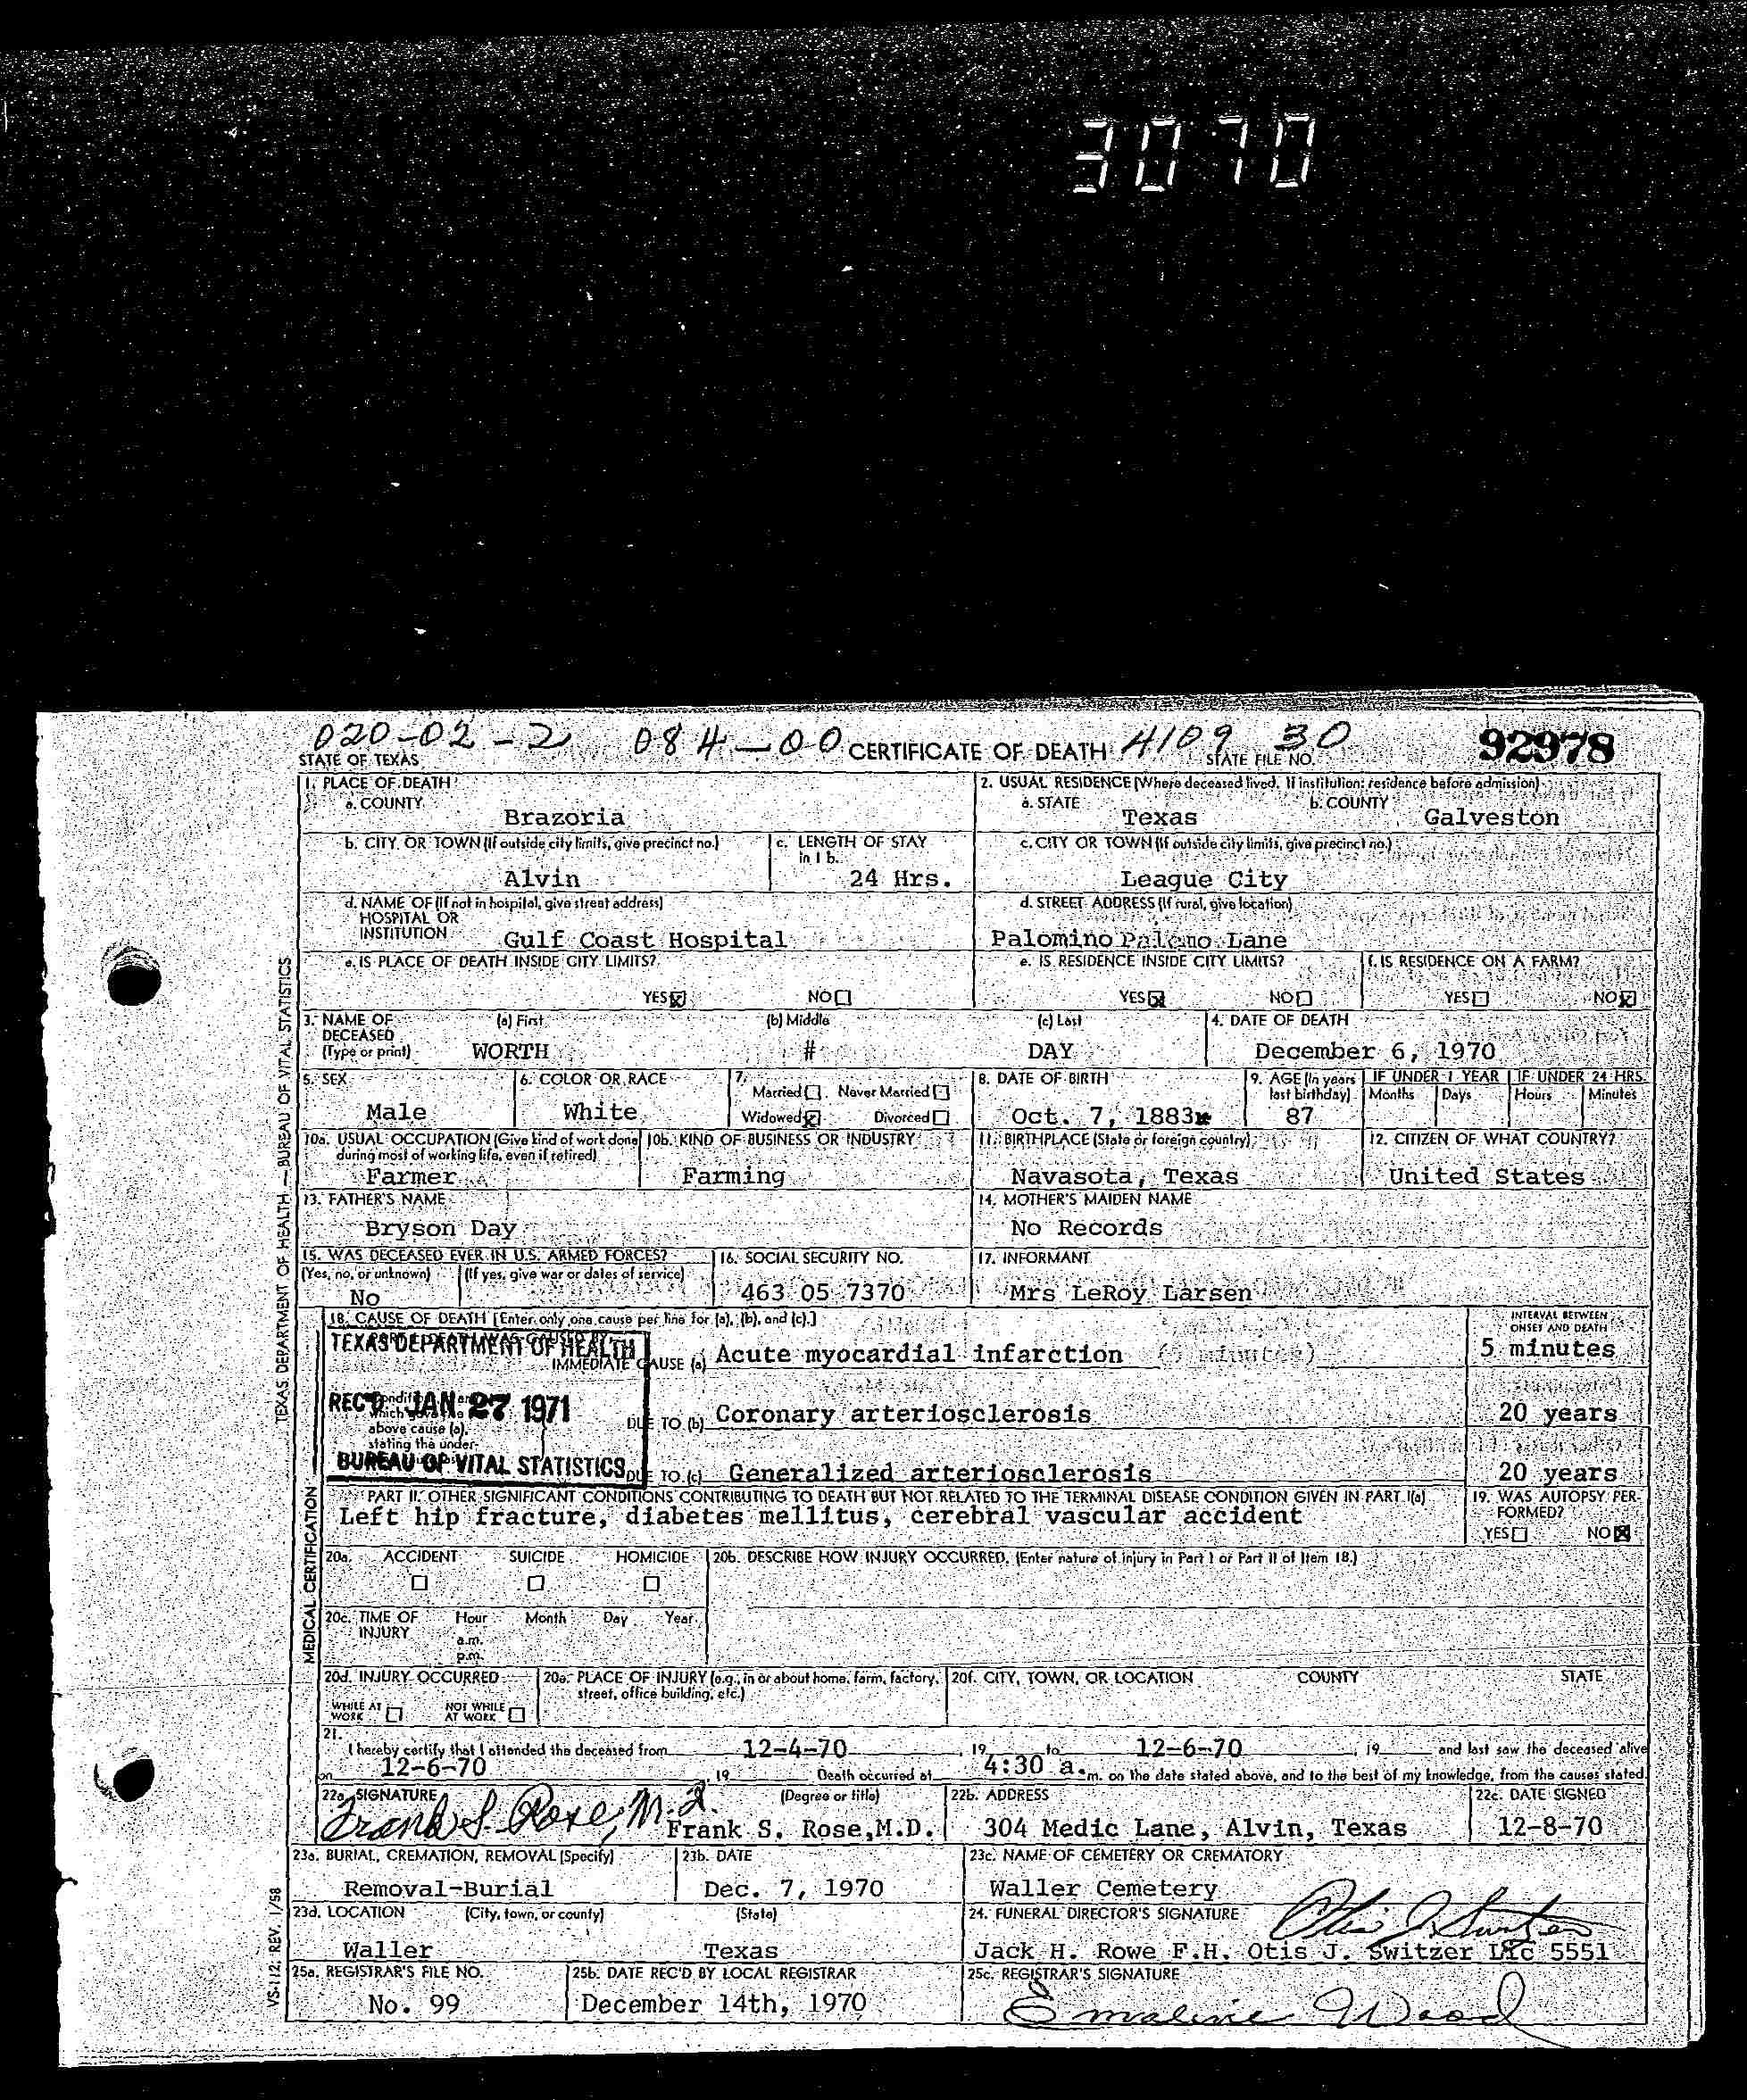 3070
020-02-2 084-00 CERTIFICATE OF DEATH 4109 30 92978
STATE OF TEXAS STATE FILE NO.
1. PLACE OF DEATH 2. USUAL RESIDENCE (Where deceased lived. If institution: residence before admission)
a. COUNTY a. STATE b. COUNTY
Brazoria Texas Galveston
b. CITY OR TOWN (If outside city limits, give precinct no.) c. LENGTH OF STAY in 1 b. c. CITY OR TOWN (If outside city limits, give precinct no.)
Alvin 24 Hrs. League City
d. NAME OF (If not in hospital, give street address) d. STREET ADDRESS (If rural, give location)
HOSPITAL OR
INSTITUTION Gulf Coast Hospital Palomino Lane
e. IS PLACE OF DEATH INSIDE CITY LIMITS? e. IS RESIDENCE INSIDE CITY LIMITS? f. IS RESIDENCE ON A FARM?
YES NO YES NO YES NO
3. NAME OF DECEASED (a) First (b) Middle (c) Last 4. DATE OF DEATH
(Type or print) WORTH # DAY December 6, 1970
5. SEX 6. COLOR OR RACE 7. Married Never Married 8. DATE OF BIRTH 9. AGE (In years last birthday) IF UNDER 1 YEAR IF UNDER 24 HRS.
Months Days Hours Minutes
Male White Widowed Divorced Oct. 7, 1883 87
10a. USUAL OCCUPATION (Give kind of work done during most of working life, even if retired) 10b. KIND OF BUSINESS OR INDUSTRY 11. BIRTHPLACE (State or foreign country) 12. CITIZEN OF WHAT COUNTRY?
Farmer Farming Navasota, Texas United States
13. FATHER'S NAME 14. MOTHER'S MAIDEN NAME
Bryson Day No Records
15. WAS DECEASED EVER IN U.S. ARMED FORCES? 16. SOCIAL SECURITY NO. 17. INFORMANT
(Yes, no, or unknown) (If yes, give war or dates of service)
No 463 05 7370 Mrs LeRoy Larsen
18. CAUSE OF DEATH [Enter only one cause per line for (a), (b), and (c).] INTERVAL BETWEEN ONSET AND DEATH
TEXAS DEPARTMENT OF HEALTH
IMMEDIATE CAUSE (a) Acute myocardial infarction 5 minutes
REC'D JAN 27 1971
which
above cause (a),
stating the under-
DUE TO (b) Coronary arteriosclerosis 20 years
BUREAU OF VITAL STATISTICS
DUE TO (c) Generalized arteriosclerosis 20 years
PART II. OTHER SIGNIFICANT CONDITIONS CONTRIBUTING TO DEATH BUT NOT RELATED TO THE TERMINAL DISEASE CONDITION GIVEN IN PART I(a) 19. WAS AUTOPSY PERFORMED?
Left hip fracture, diabetes mellitus, cerebral vascular accident YES NO
20a. ACCIDENT SUICIDE HOMICIDE 20b. DESCRIBE HOW INJURY OCCURRED. (Enter nature of injury in Part I or Part II of Item 18.)
20c. TIME OF INJURY Hour Month Day Year
a.m.
p.m.
20d. INJURY OCCURRED 20e. PLACE OF INJURY (e.g., in or about home, farm, factory, street, office building, etc.) 20f. CITY, TOWN, OR LOCATION COUNTY STATE
WHILE AT WORK NOT WHILE AT WORK
21. I hereby certify that I attended the deceased from 12-4-70, 19 to 12-6-70, 19 and last saw the deceased alive
on 12-6-70, 19 Death occurred at 4:30 a.m. on the date stated above, and to the best of my knowledge, from the causes stated.
22a. SIGNATURE (Degree or title) 22b. ADDRESS 22c. DATE SIGNED
Frank S. Rose, M.D. Frank S. Rose,M.D. 304 Medic Lane, Alvin, Texas 12-8-70
23a. BURIAL, CREMATION, REMOVAL (Specify) 23b. DATE 23c. NAME OF CEMETERY OR CREMATORY
Removal-Burial Dec. 7, 1970 Waller Cemetery
23d. LOCATION (City, town, or county) (State) 24. FUNERAL DIRECTOR'S SIGNATURE Otis J. Switzer
Waller Texas Jack H. Rowe F.H. Otis J. Switzer Lic 5551
25a. REGISTRAR'S FILE NO. 25b. DATE REC'D BY LOCAL REGISTRAR 25c. REGISTRAR'S SIGNATURE
No. 99 December 14th, 1970 Emaline Wood
TEXAS DEPARTMENT OF HEALTH — BUREAU OF VITAL STATISTICS
MEDICAL CERTIFICATION
VS-112, REV. 1/58